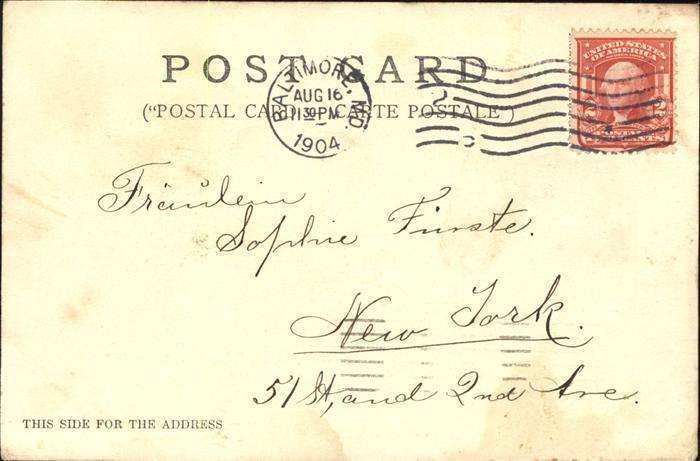 POST CARD
("POSTAL CARD — CARTE POSTALE")
BALTIMORE, MD.
AUG 16
11 30 PM
1904
UNITED STATES
OF AMERICA
Fräulein
Sophie Fürste.
New York.
51 St, and 2nd Ave.
THIS SIDE FOR THE ADDRESS